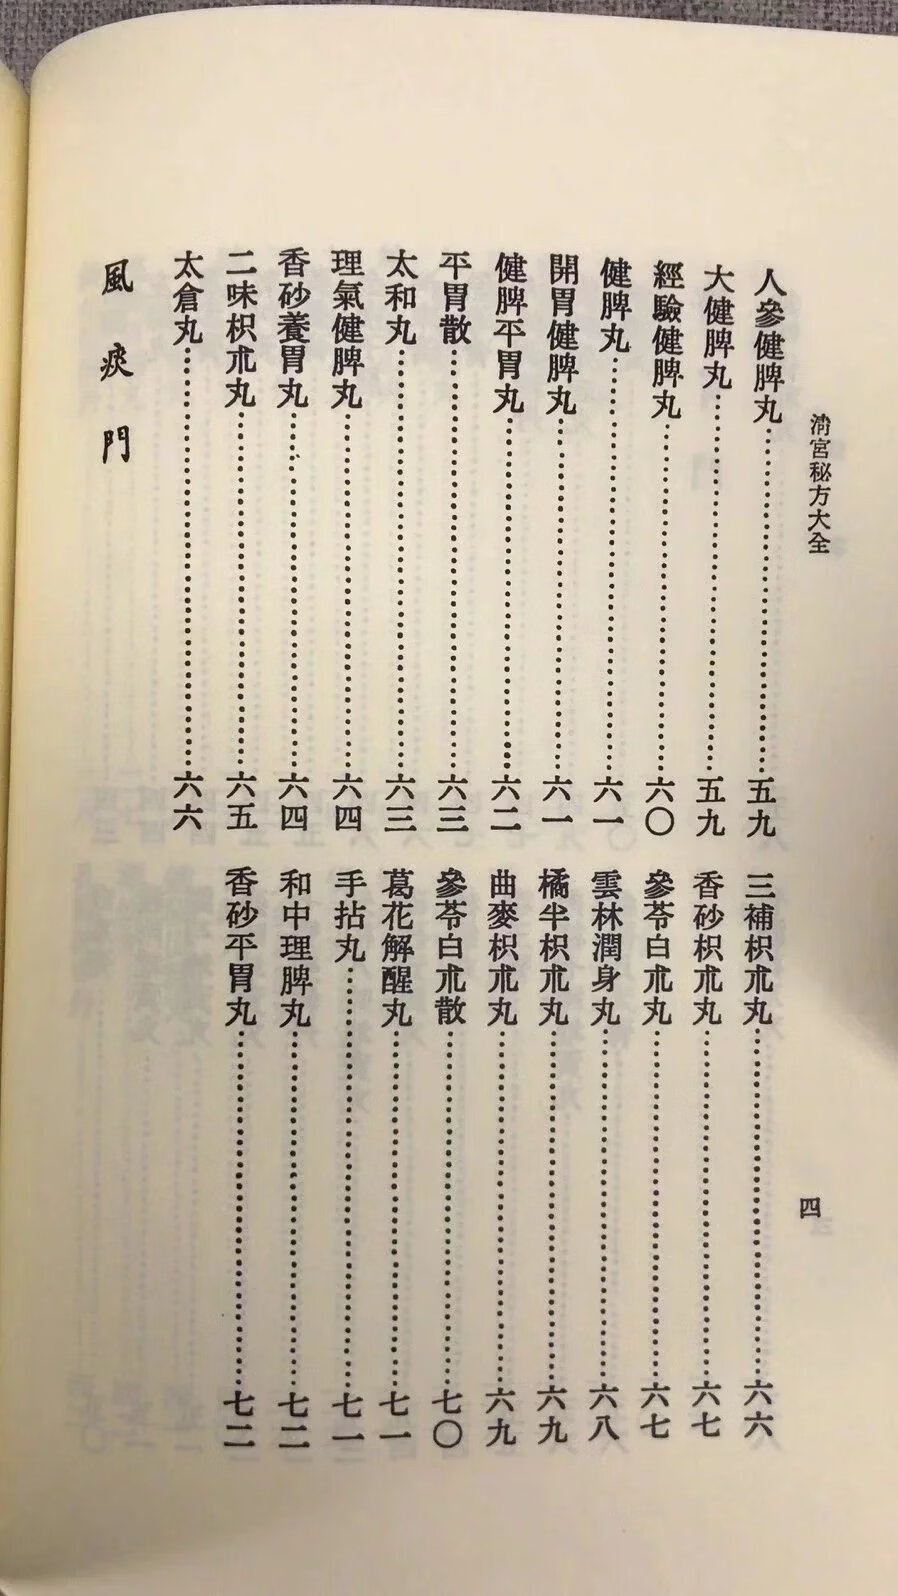 清宮秘方大全
四
人參健脾丸……五九
大健脾丸……五九
經驗健脾丸……六〇
健脾丸……六一
開胃健脾丸……六一
健脾平胃丸……六二
平胃散……六三
太和丸……六三
理氣健脾丸……六四
香砂養胃丸……六四
二味枳朮丸……六五
太倉丸……六六
三補枳朮丸……六六
香砂枳朮丸……六七
參苓白朮丸……六七
雲林潤身丸……六八
橘半枳朮丸……六九
曲麥枳朮丸……六九
參苓白朮散……七〇
葛花解醒丸……七一
手拈丸……七一
和中理脾丸……七二
香砂平胃丸……七二
風痰門